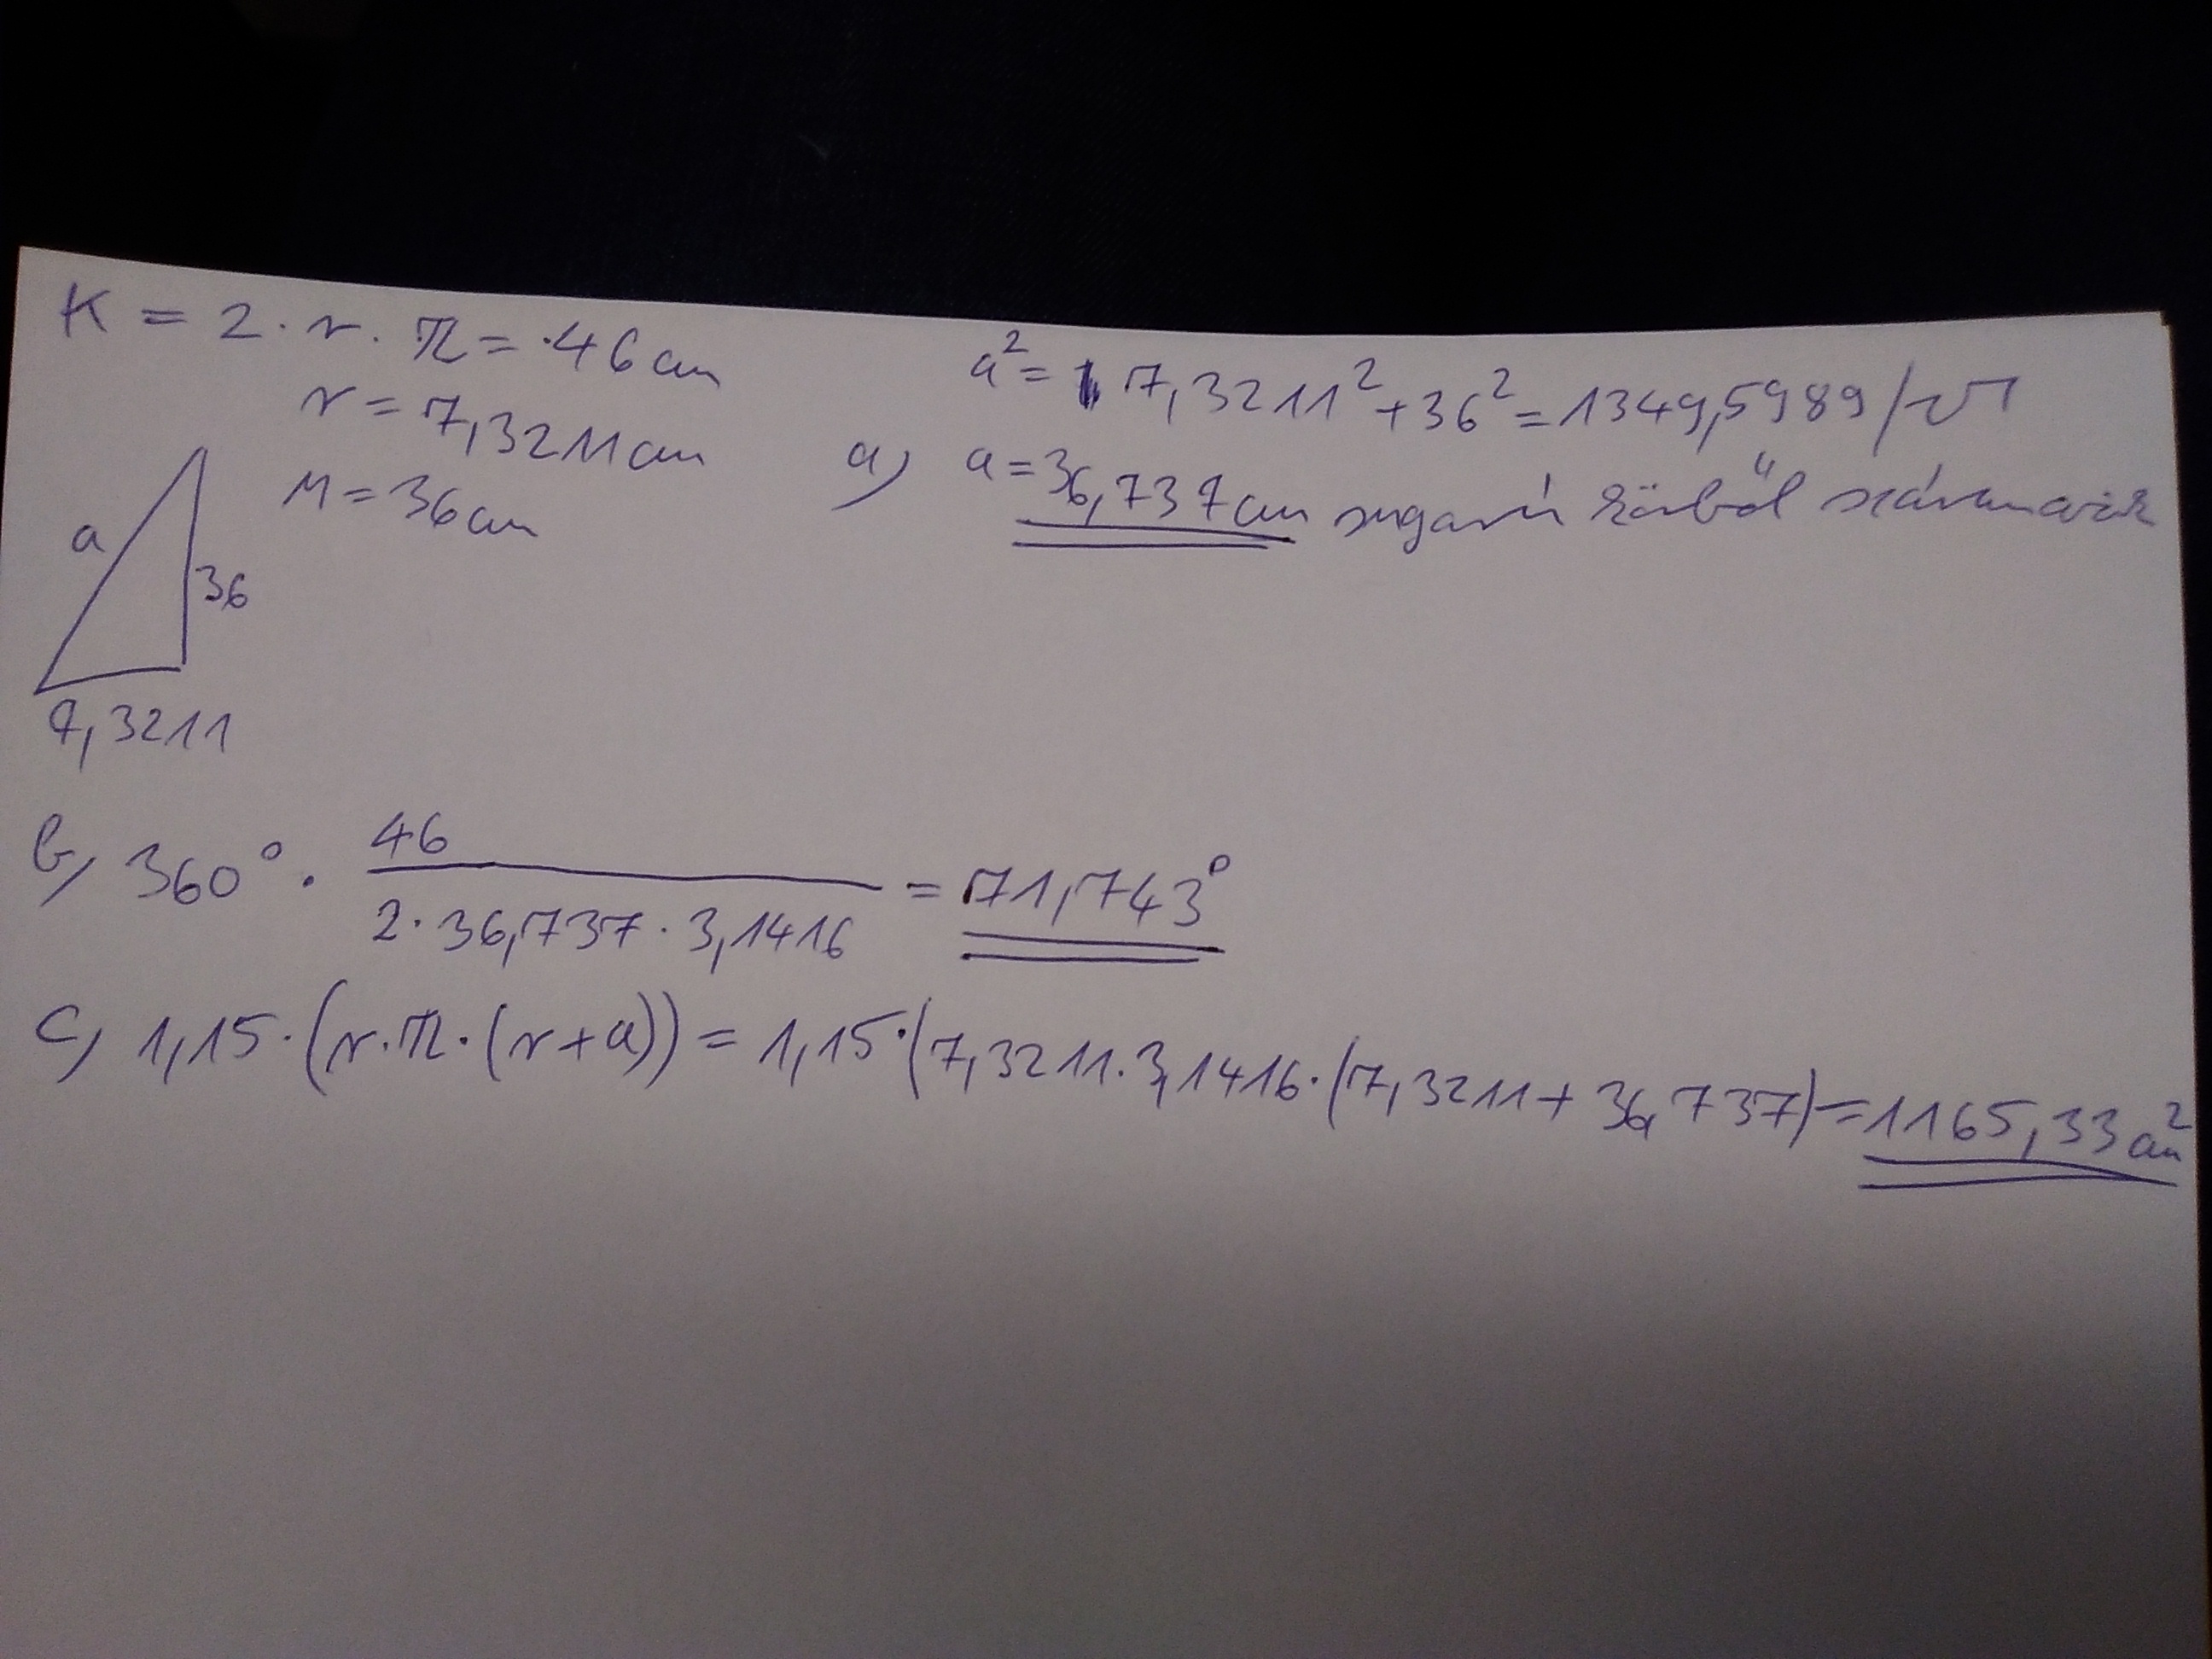 K = 2 · r · π = 46 cm
r = 7,3211 cm
M = 36 cm
a
36
7,3211
a² = 7,3211² + 36² = 1349,5989 /√
a, a = 36,737 cm sugarú körből származik
b, 360° · 46 / (2 · 36,737 · 3,1416) = 71,743°
c, 1,15 · (r · π · (r + a)) = 1,15 · (7,3211 · 3,1416 · (7,3211 + 36,737) = 1165,33 cm²